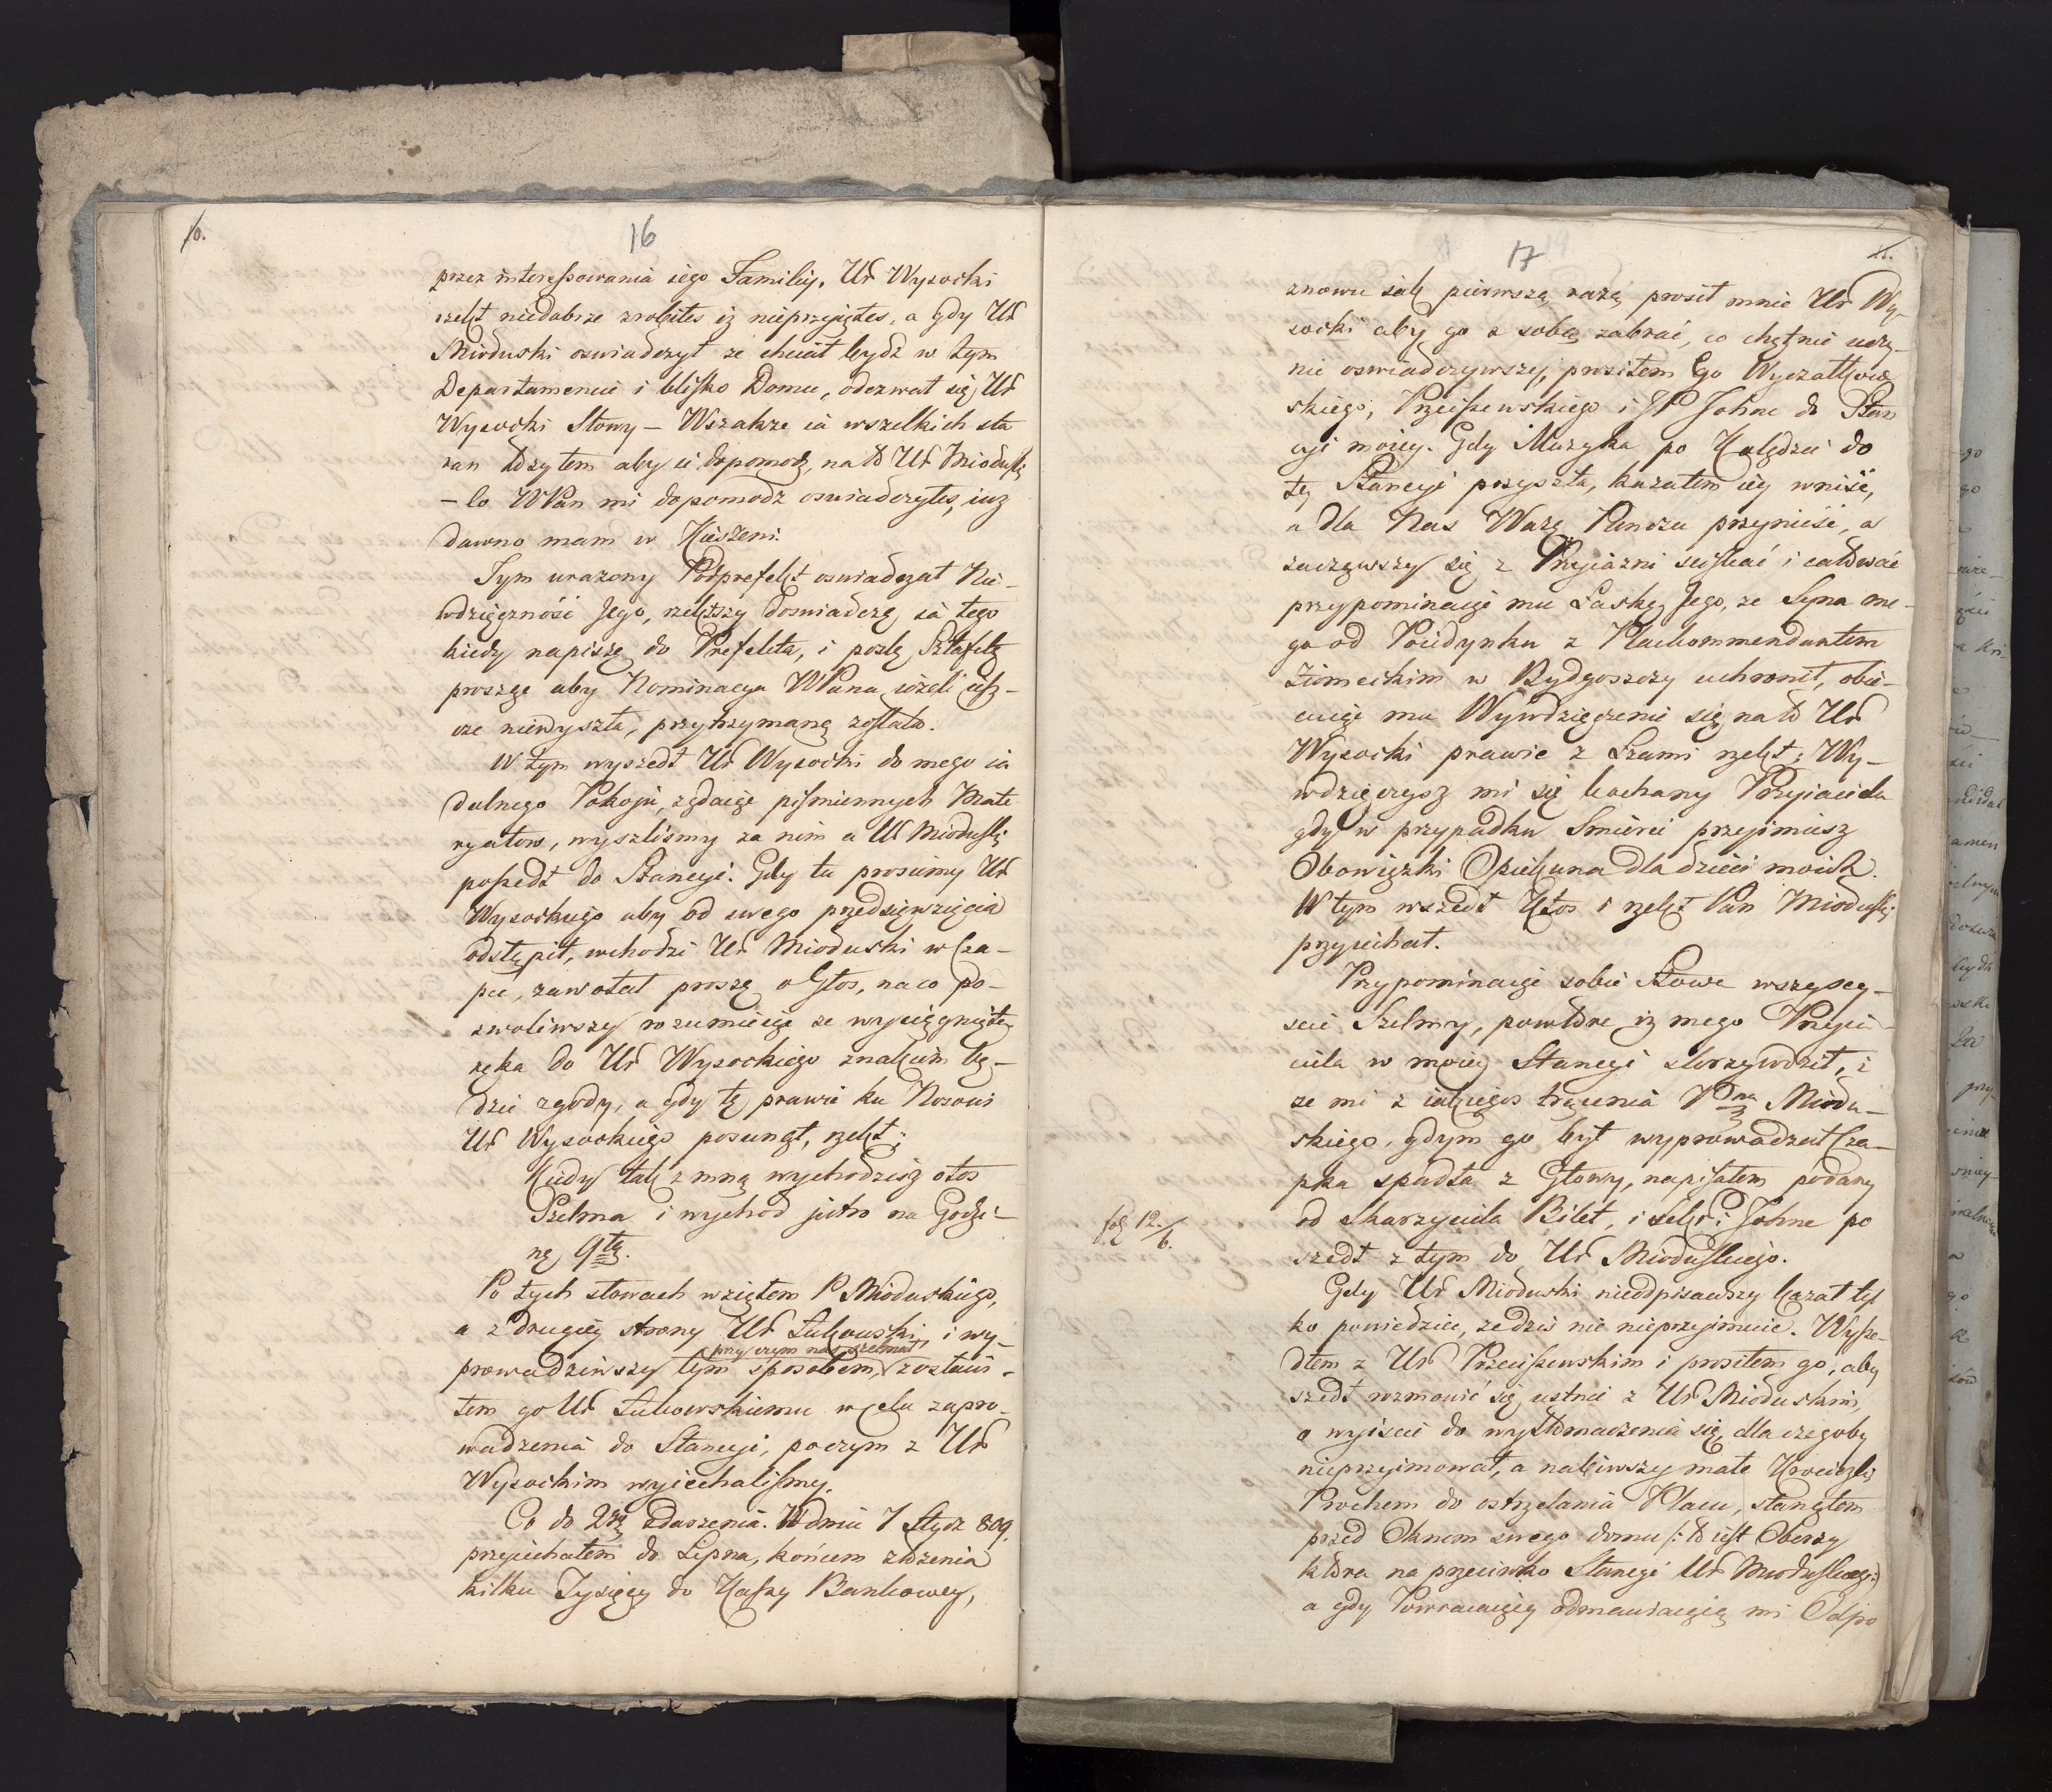 10.
16
przez interessowania iego Familij. Ur Wysocki
rzekł niedobrze zrobiłeś iż nieprzyiąłeś, a Gdy Ur
Mioduski oswiadczył ze chciał bydź w tym
Departamencie i blisko Domu, odezwał się Ur
Wysocki Słowy – Wszakże ia wszelkich sta
ran łożyłem aby ci dopomodz na to Ur Mioduski
– Co WPan mi dopomodz oswiadczyłeś, iuz
dawno mam w Kieszeni.
Tym urażony Podprefekt oswiadczał Nie-
wdzięczność Jego, rzekłszy Doswiadczę ia tego
kiedy napiszę do Prefekta, i poslę Sztafetę
proszęc aby Nominacya WPana ieżeli iesz-
cze niewyszła, przytrzymaną została.
W tym wyszedł Ur Wysocki do mego ia
dalnego Pokoju, żądaięc pismiennych Mate
ryałow, wyszlismy za nim a Ur Mioduski
poszedł do Stancyi. Gdy tu prosiemy Ur
Wysockiego aby od swego przedsięwzięcia
odstąpił, wchodzi Ur Mioduski w Cza-
pce, zawołał proszę o Głos, na co po-
zwoliwszy rozumieięc ze wyciągnięta
ręka do Ur Wysockiego znakiem bę-
dzie zgody, a gdy tę prawie ku Nosowi
Ur Wysockiego posunął, rzekł:
Kiedy tak z mną wychodzisz otos
Szelma i wychod jutro na Godzi-
nę 9tą.
Po tych słowach wziąłem P Mioduskiego,
a z drugiey strony Ur Łukowski, i wy-
przy czym nas szelmał
prowadziwszy tym sposobem, zostawi-
łem go Ur Łukowskiemu w celu zapro-
wadzenia do Stancyi, poczym z Ur
Wysockim wyiechalismy.
Co do 2go zdarzenia. W dniu 7 Stycz 809.
przyiechałem do Lipna, końcem złożenia
kilku Tysięcy do Kassy Bankowey,
17
11.
znowu iak pierwszą razą prosił mnie Ur Wy-
socki aby go z sobą zabrać, co chętnie uczy-
nić oswiadczywszy, prosiłem Ego Wyczałkow
skiego, Przeciszewskiego i JP Johne do Stan
cyi moiey. Gdy Muzyka po Kolędzie do
tey Stancyi przyszła, kazałem iey wniść,
a dla Nas Wazę Ponczu przynieść, a
zacząwszy się z Przyiazni sciskać i całować
przypominaięc mu Łaskę Jego, ze Syna me-
go od Poiedynku z Plackommendantem
Ziomeckim w Bydgoszczy uchronił, obie-
cuięc mu Wywdzięczenie się, na to Ur
Wysocki prawie z Łzami rzekł: Wy-
wdzięczysz mi się kochany Przyiacielu
gdy w przypadku Smierci przeymiesz
Obowiązki Opiekuna dla dzieci moich.
W tym wszedł Ktos i rzekł Pan Mioduski
przyiechał.
Przypominaięc sobie Słowa wszyscy-
scie Szelmy, powtore iż mego Przyia-
ciela w moiey Stancyi skrzywdził, i
ze mi z iakiegos trącenia Pna Miodu-
skiego, gdym go był wyprowadzał Cza-
pka spadła z Głowy, napisałem podany
od Skarzyciela Bilet, i Sekr: Johne po
fol 12./6.
szedł z tym do Ur Mioduskiego.
Gdy Ur Mioduski nieodpisawszy kazał tyl
ko powiedziec, ze dzis nic nieprzyimuie. Wysze-
dłem z Ur Przeciszewskim i prosiłem go, aby
szedł rozmowić się ustnie z Ur Mioduskim,
o wyiscie do wytłomaczenia się, dla czegoby
nieprzyimował, a nabiwszy małe Krociczki
Prochem do ostrzelania Placu, stanąłem
przed Oknem swego domu /: to iest Oberzy
ktora na przeciwko Stancyi Ur Mioduskieg:/
a gdy Powracaiący odmawiaiącą mi Odpo